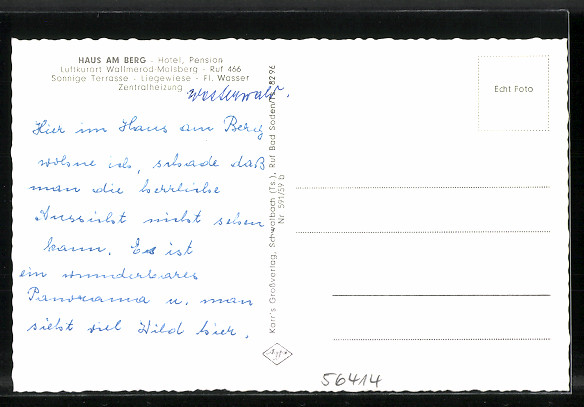 HAUS AM BERG - Hotel, Pension
Luftkurort Wallmerod-Molsberg - Ruf 466
Sonnige Terrasse - Liegewiese - Fl. Wasser
Zentralheizung
Westerwald.
Hier im Haus am Berg
wohne ich, schade daß
man die herrliche
Aussicht nicht sehen
kann. Es ist
ein wunderbares
Panorama u. man
sieht viel Wild hier.
Karr's Großverlag, Schwalbach (Ts.), Ruf Bad Soden/Ts. 8296
Nr 591/59 b
Agfa
Echt Foto
56414